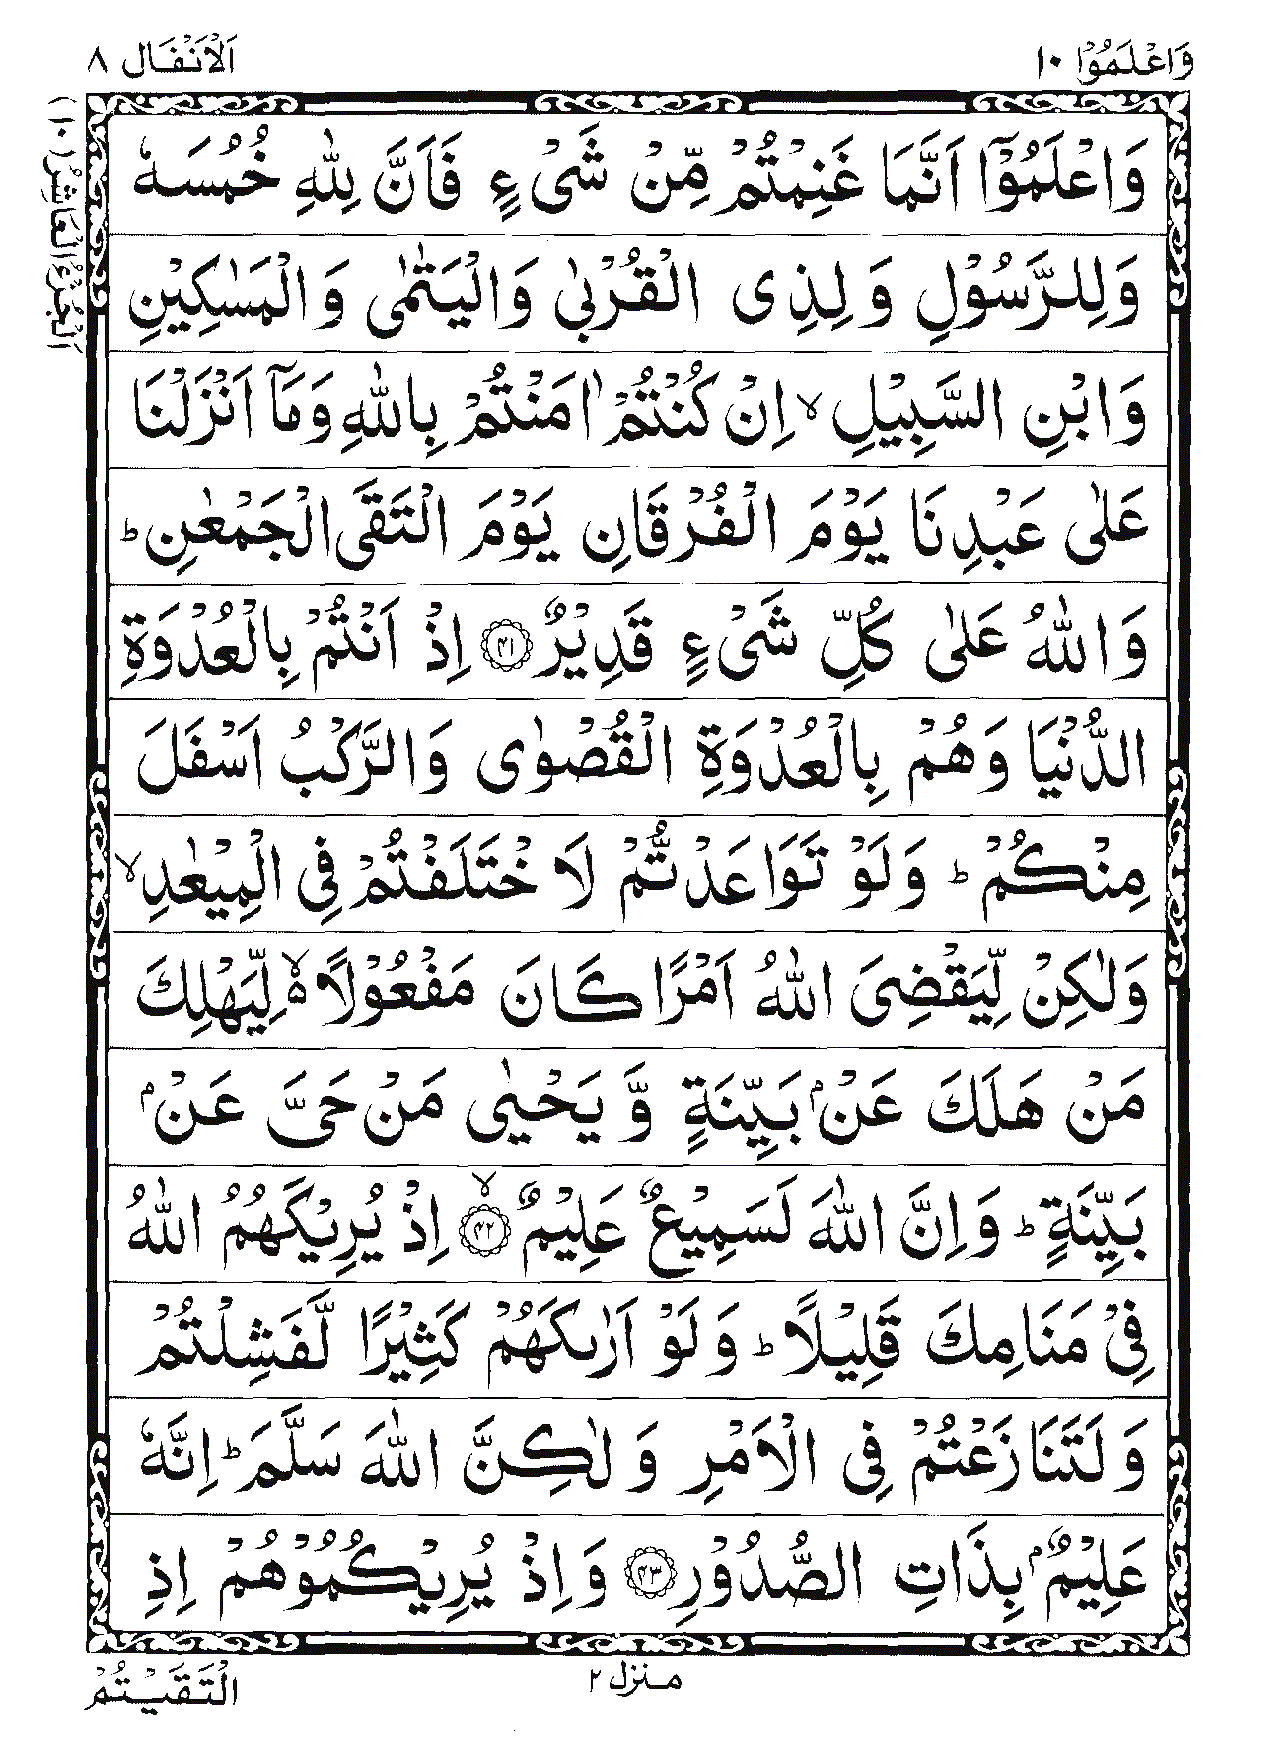 وَاعْلَمُوْا ۱۰
اَلْاَنْفَال ۸
اَلْجُزْءُ الْعَاشِرُ (۱۰)
وَاعْلَمُوْۤا اَنَّمَا غَنِمْتُمْ مِّنْ شَیْءٍ فَاَنَّ لِلّٰهِ خُمُسَهٗ
وَلِلرَّسُوْلِ وَ لِذِی الْقُرْبٰی وَالْیَتٰمٰی وَالْمَسٰكِیْنِ
وَابْنِ السَّبِیْلِ ۙ اِنْ كُنْتُمْ اٰمَنْتُمْ بِاللّٰهِ وَمَاۤ اَنْزَلْنَا
عَلٰی عَبْدِنَا یَوْمَ الْفُرْقَانِ یَوْمَ الْتَقَی الْجَمْعٰنِ ؕ
وَاللّٰهُ عَلٰی كُلِّ شَیْءٍ قَدِیْرٌ ﴿۴۱﴾ اِذْ اَنْتُمْ بِالْعُدْوَةِ
الدُّنْیَا وَهُمْ بِالْعُدْوَةِ الْقُصْوٰی وَالرَّكْبُ اَسْفَلَ
مِنْكُمْ ؕ وَلَوْ تَوَاعَدْتُّمْ لَاخْتَلَفْتُمْ فِی الْمِیْعٰدِ ۙ
وَلٰكِنْ لِّیَقْضِیَ اللّٰهُ اَمْرًا كَانَ مَفْعُوْلًا ۙ۬ لِّیَهْلِكَ
مَنْ هَلَكَ عَنْۢ بَیِّنَةٍ وَّ یَحْیٰی مَنْ حَیَّ عَنْۢ
بَیِّنَةٍ ؕ وَ اِنَّ اللّٰهَ لَسَمِیْعٌ عَلِیْمٌ ﴿ۙ۴۲﴾ اِذْ یُرِیْكَهُمُ اللّٰهُ
فِیْ مَنَامِكَ قَلِیْلًا ؕ وَ لَوْ اَرٰىكَهُمْ كَثِیْرًا لَّفَشِلْتُمْ
وَ لَتَنَازَعْتُمْ فِی الْاَمْرِ وَ لٰكِنَّ اللّٰهَ سَلَّمَ ؕ اِنَّهٗ
عَلِیْمٌۢ بِذَاتِ الصُّدُوْرِ ﴿۴۳﴾ وَ اِذْ یُرِیْكُمُوْهُمْ اِذِ
منزل ۲
الْتَقَیْتُمْ